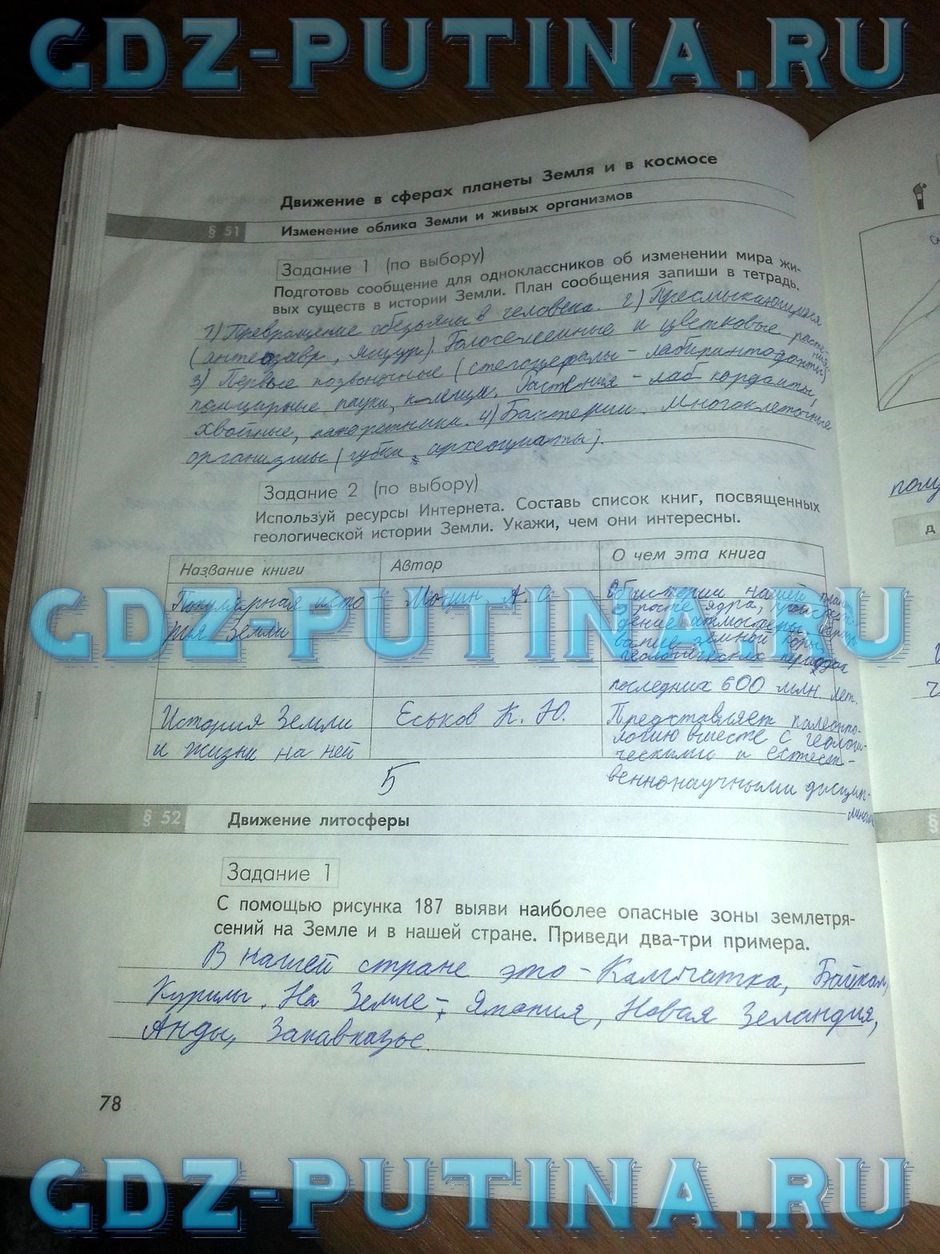 GDZ-PUTINA.RU
Движение в сферах планеты Земля и в космосе
§ 51 Изменение облика Земли и живых организмов
Задание 1 (по выбору)
Подготовь сообщение для одноклассников об изменении мира жи-
вых существ в истории Земли. План сообщения запиши в тетрадь.
1) Превращение обезьяны в человека. 2) Пресмыкающиеся
(ящур). Голосеменные и цветковые расте
3) Первые позвоночные (стегоцефалы – лабиринтодонты)
пауки, клещи. Растения – кордаиты,
хвойные, папоротники. 4) Бактерии. Многоклеточные
организмы (губки, археоциаты).
Задание 2 (по выбору)
Используй ресурсы Интернета. Составь список книг, посвященных
геологической истории Земли. Укажи, чем они интересны.
Название книги Автор О чем эта книга
Популярная исто А. С. Об истории нашей
рия Земли о росте ядра,
GDZ-PUTINA.RU
земной коры
геологических
последних 600 млн. лет.
История Земли Еськов К. Ю. Представляет палеонто-
и жизни на ней логию вместе с геологи-
ческими и естест-
5 веннонаучными дисцип-
§ 52 Движение литосферы
Задание 1
С помощью рисунка 187 выяви наиболее опасные зоны землетря-
сений на Земле и в нашей стране. Приведи два-три примера.
В нашей стране это – Камчатка, Байкал,
Курилы. На Земле – Япония, Новая Зеландия,
Анды, Закавказье.
78
GDZ-PUTINA.RU